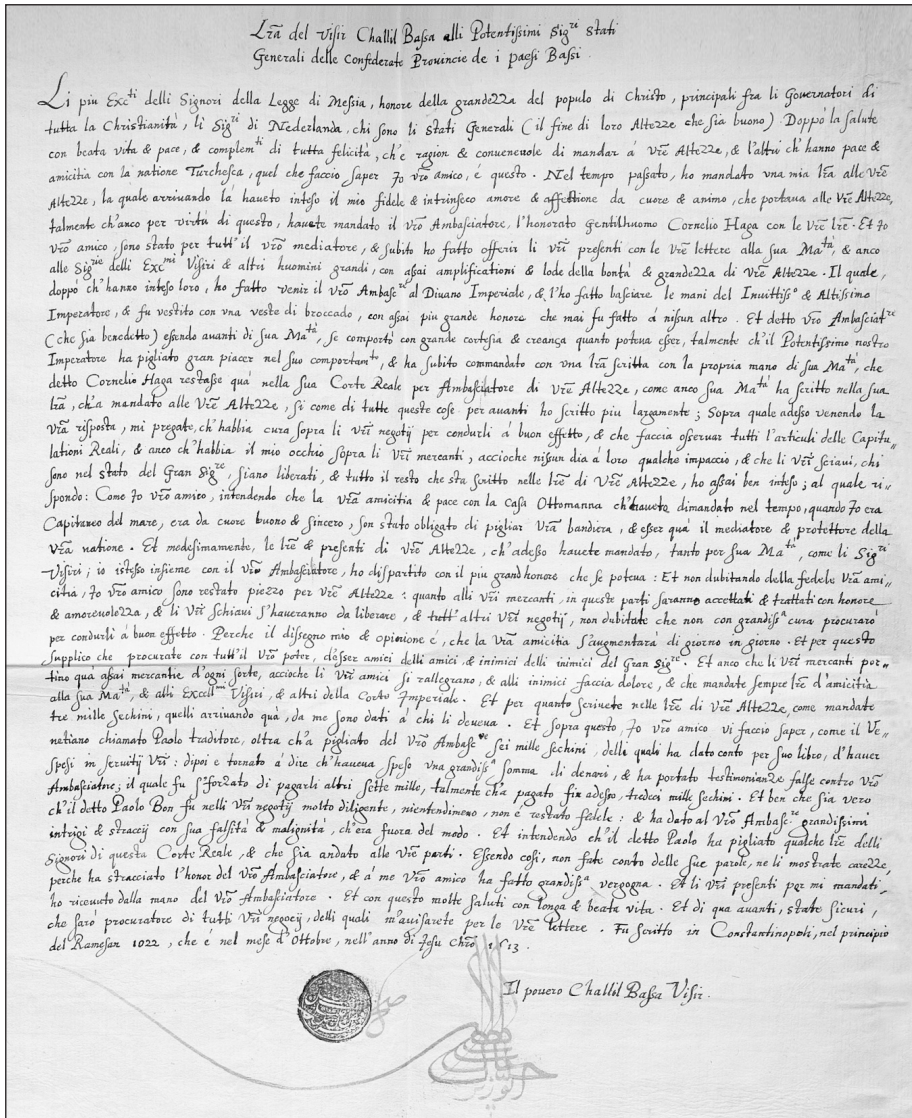 Lr̃a del Visir Challil Bassa alli Potentissimi Sig.ri Stati
Generali delle Confederate Prouincie de i paesi Bassi.
Li piu Exc.ti delli Signori della Legge di Messia, honore della grandezza del populo di Christo, principali fra li Gouernatori di
tutta la Christianità, li Sig.ri di Nederlanda, chi sono li stati Generali (il fine di loro Altezze che sia buono) Doppo la salute
con beata vita & pace, & complem.ti di tutta felicità, ch'e ragion & conueneuole di mandar á Vr̃e Altezze, & l'altri ch'hanno pace &
amicitia con la natione Turchesca, quel che faccio saper Jo Vr̃o amico, e questo. Nel tempo passato, ho mandato una mia lr̃a alle Vr̃e
Altezze, la quale arriuando là haueto inteso il mio fidele & intrinseco amore & affettione da cuore & animo, che portaua alle Vr̃e Altezze,
talmente ch'anco per virtú di questo, hauete mandato il vr̃o Ambasciatore, l'honorato Gentilhuomo Cornelio Haga con le Vr̃e lr̃e. Et Jo
Vr̃o amico, sono stato per tutt'il vr̃o mediatore, & subito ho fatto offerir li vr̃i presenti con le Vr̃e lettere alla sua Ma.tá, & anco
alle Sig.rie delli Exc.mi Visiri & altri huomini grandi, con assai amplificationi & lode della bontá & grandezza di Vr̃e Altezze. Il quale,
doppò ch'hanno inteso loro, ho fatto venir il vr̃o Ambasc.re al Diuano Imperiale, & l'ho fatto basciare le mani del Inuittiss.o & Altissimo
Imperatore, & fu vestito con vna veste di broccado, con assai piu grande honore che mai fu fatto á nissun altro. Et detto vr̃o Ambasciat.re
(che sia benedetto) essendo auanti di sua Ma.tá, se comportó con grande cortesia & creança quanto poteua esser, talmente ch'il Potentissimo nostro
Imperatore ha pigliato gran piacer nel suo comportam.to, & ha subito commandato con una lr̃a scritta con la propria mano di sua Ma.tá, che
detto Cornelio Haga restasse quá nella sua Corte Reale per Ambasciatore di Vr̃e Altezze, come anco sua Ma.tá ha scritto nella sua
lr̃a, ch'a mandato alle Vr̃e Altezze, si come di tutte queste cose per auanti ho scritto piu largamente; Sopra quale adesso venendo la
Vr̃a risposta, mi pregate, ch'habbia cura sopra li vr̃i negotij per condurli á buon effetto, & che faccia osseruar tutti l'articuli delle Capitu„
lationi Reali, & anco ch'habbia il mio occhio sopra li Vr̃i mercanti, accioche nissun dia á loro qualche impaccio, & che li Vr̃i sciaui, chi
sono nel stato del Gran Sig.re, siano liberati, & tutto il resto che sta scritto nelle lr̃e di Vr̃e Altezze, ho assai ben inteso; al quale ri=
spondo: Come Jo vr̃o amico, intendendo che la vr̃a amicitia & pace con la Casa Ottomanna ch'hauete dimandato nel tempo, quando Jo era
Capitaneo del mare, era da cuore buono & sincero, son stato obligato di pigliar Vr̃a bandiera, & esser quá il mediatore & protettore della
Vr̃a natione. Et medesimamente, le lr̃e & presenti di Vr̃e Altezze, ch'adesso hauete mandato, tanto per sua Ma.tá, come li Sig.ri
Visiri; io istesso insieme con il vr̃o Ambasciatore, ho dispartito con il piu grand honore che se poteua: Et non dubitando della fedele Vr̃a ami=
citia, Jo Vr̃o amico sono restato piezzo per Vr̃e Altezze: quanto alli vr̃i mercanti, in queste parti saranno accettati & trattati con honore
& amoreuolezza, & li Vr̃i schiaui s'haueranno da liberare, & tutt'altri Vr̃i negotij, non dubitate che non con grandiss.a cura procuraró
per condurli á buon effetto. Perche il dissegno mio & opinione é, che la Vr̃a amicitia s'augmentará di giorno in giorno. Et per questo
supplico che procurate con tutt'il vr̃o poter, d'esser amici delli amici, & inimici delli inimici del Gran Sig.re. Et anco che li Vr̃i mercanti por=
tino qua assai mercantie d'ogni sorte, accioche li Vr̃i amici si rallegrano, & alli inimici faccia dolore, & che mandate sempre lr̃e d'amicitia
alla sua Ma.tá, & alli Excell.mi Visiri, & altri della Corte Imperiale. Et per quanto scriuete nelle lr̃e di Vr̃e Altezze, come mandate
tre mille sechini, quelli arriuando quà, da me sono dati á chi li deueua. Et sopra questo, Jo vr̃o amico vi faccio saper, come il Ve=
netiano chiamato Paolo traditore, oltra ch'a pigliato del Vr̃o Ambasc.re sei mille sechini, delli quali ha dato conto per suo libro, d'hauer
spesi in seruitij Vr̃i: dipoi e tornato á dire ch'haueua speso vna grandiss.a somma di denari, & ha portato testimonianze false contro vr̃o
Ambasciatore; il quale fu sforzato di pagarli altri sette mille, talmente ch'a pagato fin adesso, tredeci mille sechini. Et ben che sia vero
ch'il detto Paolo Bon fu nelli Vr̃i negotij molto diligente, nientendimeno, non e restato fedele: & ha dato al vr̃o Ambasc.re grandissimi
intrigi & straccij con sua falsitá & malignitá, ch'era fuora del modo. Et intendendo ch'il detto Paolo ha pigliato qualche lr̃e delli
Signori di questa Corte Reale, & che sia andato alle Vr̃e parti. Essendo cosi, non fate conto delle sue parole, ne li mostrate carezze,
perche ha stracciato l'honor del vr̃o Ambasciatore, & á me vr̃o amico ha fatto grandiss.a vergogna. Et li vr̃i presenti por mi mandati,
ho riceuuto dalla mano del Vr̃o Ambasciatore. Et con questo molte saluti con longa & beata vita. Et di qua auanti, state sicuri,
che saró procuratore di tutti vr̃i negocij, delli quali m'auisarete per le Vr̃e lettere. Fu scritto in Constantinopoli, nel principio
del Ramesan 1022, che é nel mese d'Ottobre, nell'anno di Jesu Chr̃o 1613.
Il pouero Challil Bassa Visir.